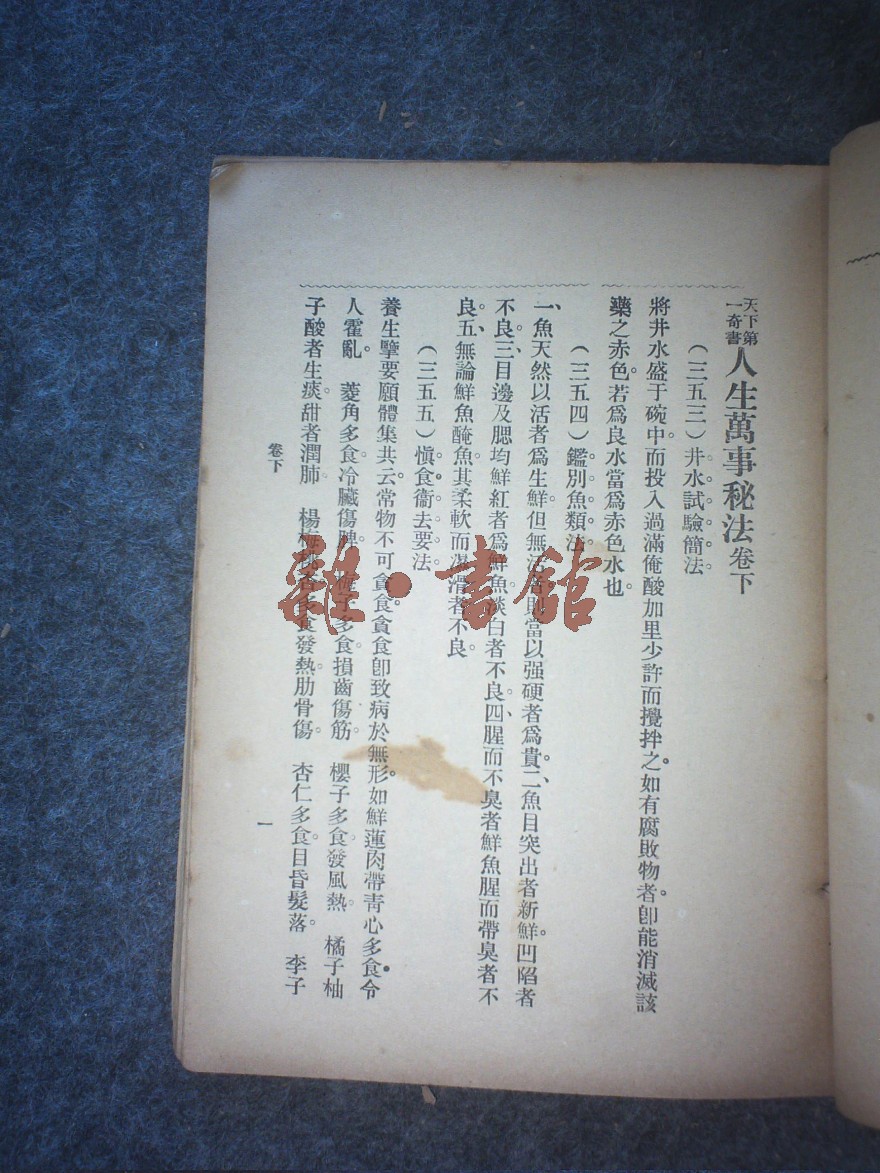 天下第一奇書 人生萬事秘法 卷下
(三五三)井水試驗簡法。
將井水盛于碗中。而投入過滿俺酸加里少許而攪拌之。如有腐敗物者。卽能消滅該
藥之赤色。若爲良水當爲赤色水也。
(三五四)鑑別魚類法
一、魚天然以活者爲生鮮。但無活者則當以强硬者爲貴。二、魚目突出者新鮮。凹陷者
不良。三、目邊及腮均鮮紅者爲鮮魚。淡白者不良。四、腥而不臭者鮮魚。腥而帶臭者不
良。五、無論鮮魚醃魚。其柔軟而滑者不良。
(三五五)愼食衞去要法
養生擥要願體集共云。常物不可貪食。貪食卽致病於無形。如鮮蓮肉帶靑心多食。令
人霍亂。 菱角多食。冷臟傷脾。 子多食。損齒傷筋。 櫻子多食。發風熱。 橘子柚
子酸者生痰。甜者潤肺。 楊梅桃杏多食。發熱肋骨傷。 杏仁多食。目昏髮落。 李子
卷下
一
雜·書館